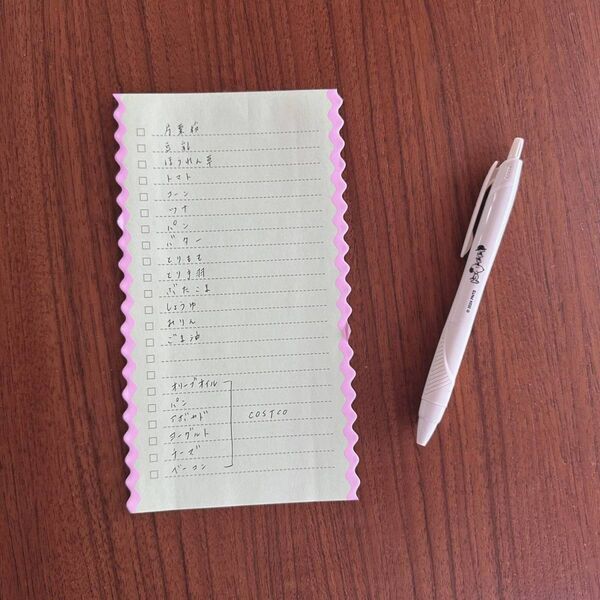 片栗粉
豆乳
ほうれん草
トマト
コーン
ツナ
パン
バター
とりもも
とり手羽
ぶたこま
しょうゆ
みりん
ごま油
オリーブオイル
パン
アボカド
COSTCO
ヨーグルト
チーズ
ベーコン